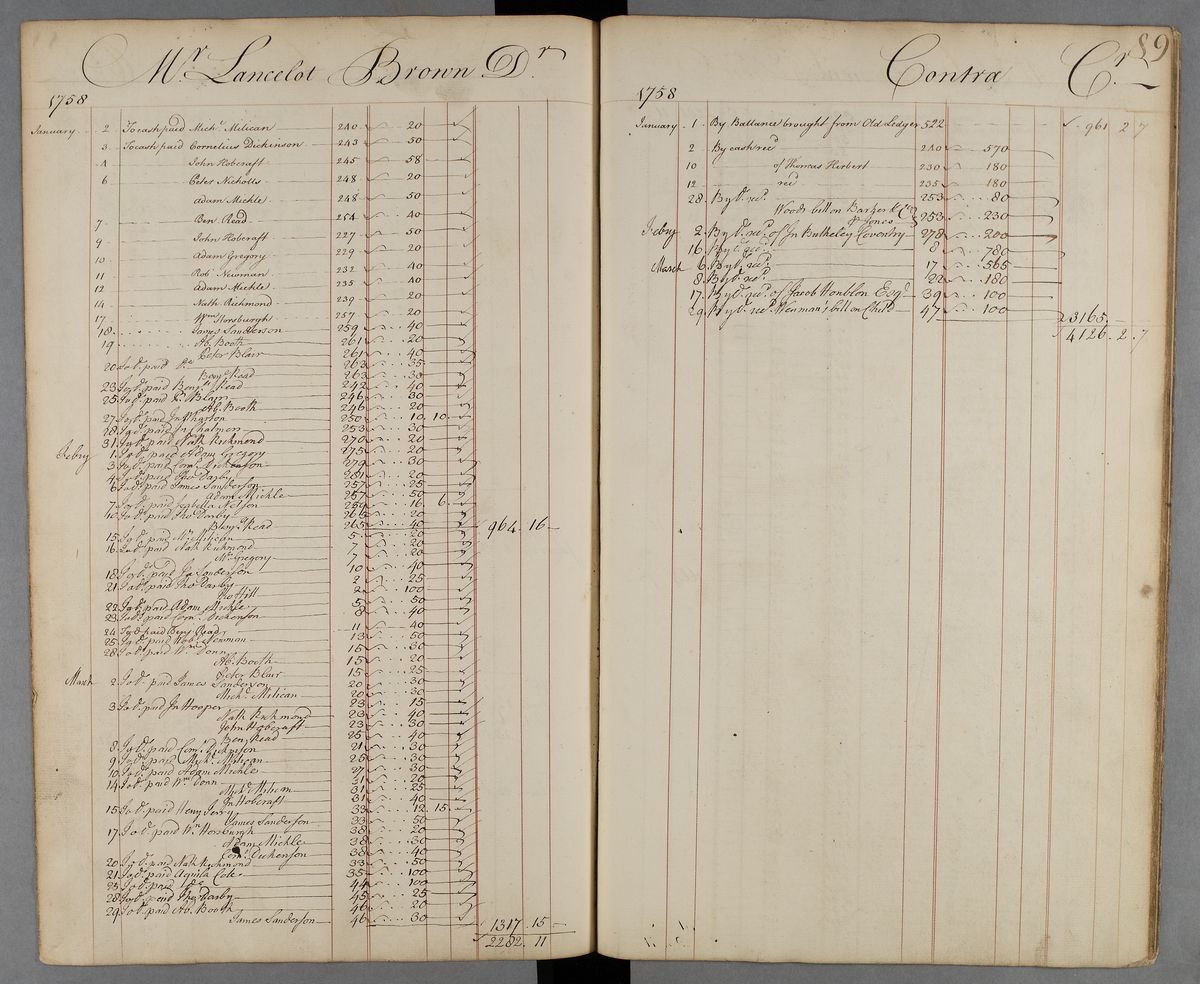 Mr. Lancelot Brown Dr.
1758
January 2 To cash paid Michl. Milican 240 20
3 To cash paid Cornelius Dickinson 243 50
4 John Hobcraft 245 58
6 Peter Nicholls 248 20
Adam Michle 248 50
7 Benj. Read 254 40
9 John Hobcraft 227 50
10 Adam Gregory 229 20
11 Rob. Newman 232 40
12 Adam Michle 235 40
14 Nath Richmond 239 20
17 Wm Horsburgh 257 20
18 James Sanderson 259 40
19 Ab. Booth 261 20
Peter Blair 261 40
20 To do. paid Do 263 35
Benj. Read 263 30
23 To do. paid Benjn. Read 242 40
25 To do. paid Pr. Blair 246 30
Ab. Booth 246 20
27 To do. paid Jn Wharton 250 10 10
28 To do. paid Jn Chalmers 253 30
31 To do. paid Nath Richmond 270 20
Febry 1 To do. paid Adam Gregory 275 20
3 To do. paid Corns. Dickenson 279 30
4 To do. paid Thos Darby 281 20
6 To do. paid James Sanderson 257 25
Adam Michle 257 50
7 To do. paid Isabella Nelson 259 16 6
10 To do. paid Thos Darby 265 20
Benj. Read 265 40 964 16
15 To do. paid Mr. Milican 5 20
16 To do. paid Nath Richmond 7 20
Mr. Gregory 7 20
18 To do. paid Js Sanderson 10 40
21 To do. paid Thos Darby 2 25
2 100
22 To do. paid Adam Michle 5 50
23 To do. paid Corns. Dickenson 8 40
24 To do. paid Benj Read 11 40
25 To do. paid Rob. Newman 13 50
28 To do. paid Wm Donn 15 30
Ab. Booth 15 20
Peter Blair 15 25
March 2 To do. paid James Sanderson 20 30
Michl. Milican 20 30
3 To do. paid Jn Hooper 23 15
Nath Richmond 23 40
John Hobcraft 23 30
Benj Read 25 40
8 To do. paid Corns. Dickenson 21 30
9 To do. paid Michl. Milican 25 30
10 To do. paid Adam Michle 27 30
14 To do. paid Wm Donn 31 20
Michl. Milican 31 25
Jn Hobcraft 31 40
15 To do. paid Henry 33 12 15
James Sanderson 33 50
17 To do. paid Wm Horsburgh 38 20
Adam Michle 38 30
Corns. Dickenson 38 40
20 To do. paid Nath Richmond 33 50
21 To do. paid Aquila Cole 35 100
23 To do. paid Do 44 100
28 To do. paid Thos Darby 45 25
29 To do. paid Ab. Booth 46 20
James Sanderson 46 30 1317 15
2282 11
89
Contra Cr.
1758
January 1 By Ballance brought from Old Ledger 522 961 2 7
2 By cash recd 240 570
10 of Thomas Herbert 230 180
12 recd 235 180
28 By do. recd. 253 80
Woods bill on Barker & Co. & Jones 253 230
Febry 2 By do. recd. of Jn Bulkeley Coventry 278 200
16 By do. recd. 8 780
March 6 By do. recd. 17 565
8 By do. recd. 22 180
17 By do. recd. of Jacob Houblon Esqr. 39 100
29 By do. recd. Wenman's bill on Child 47 100 3165
4126 2 7